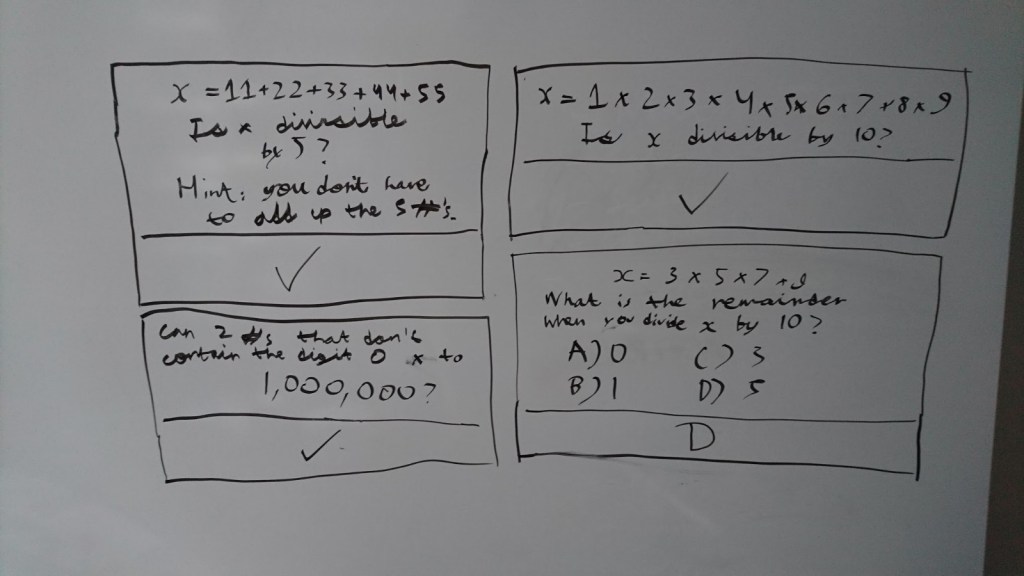 x = 11+22+33+44+55
Is x divisible
by 5?
Hint: you don't have
to add up the 5 #'s.
✓
x = 1 x 2 x 3 x 4 x 5 x 6 x 7 x 8 x 9
Is x divisible by 10?
✓
Can 2 #s that don't
contain the digit 0 x to
1,000,000?
✓
x = 3 x 5 x 7 x 9
What is the remainder
when you divide x by 10?
A) 0 C) 3
B) 1 D) 5
D